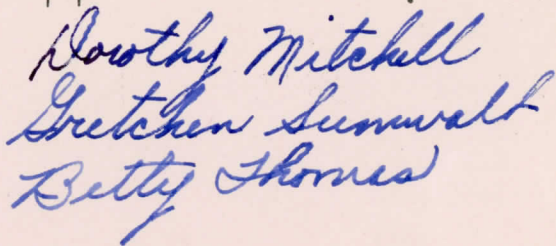 Dorothy Mitchell
Gretchen Sumwalt
Betty Thomas